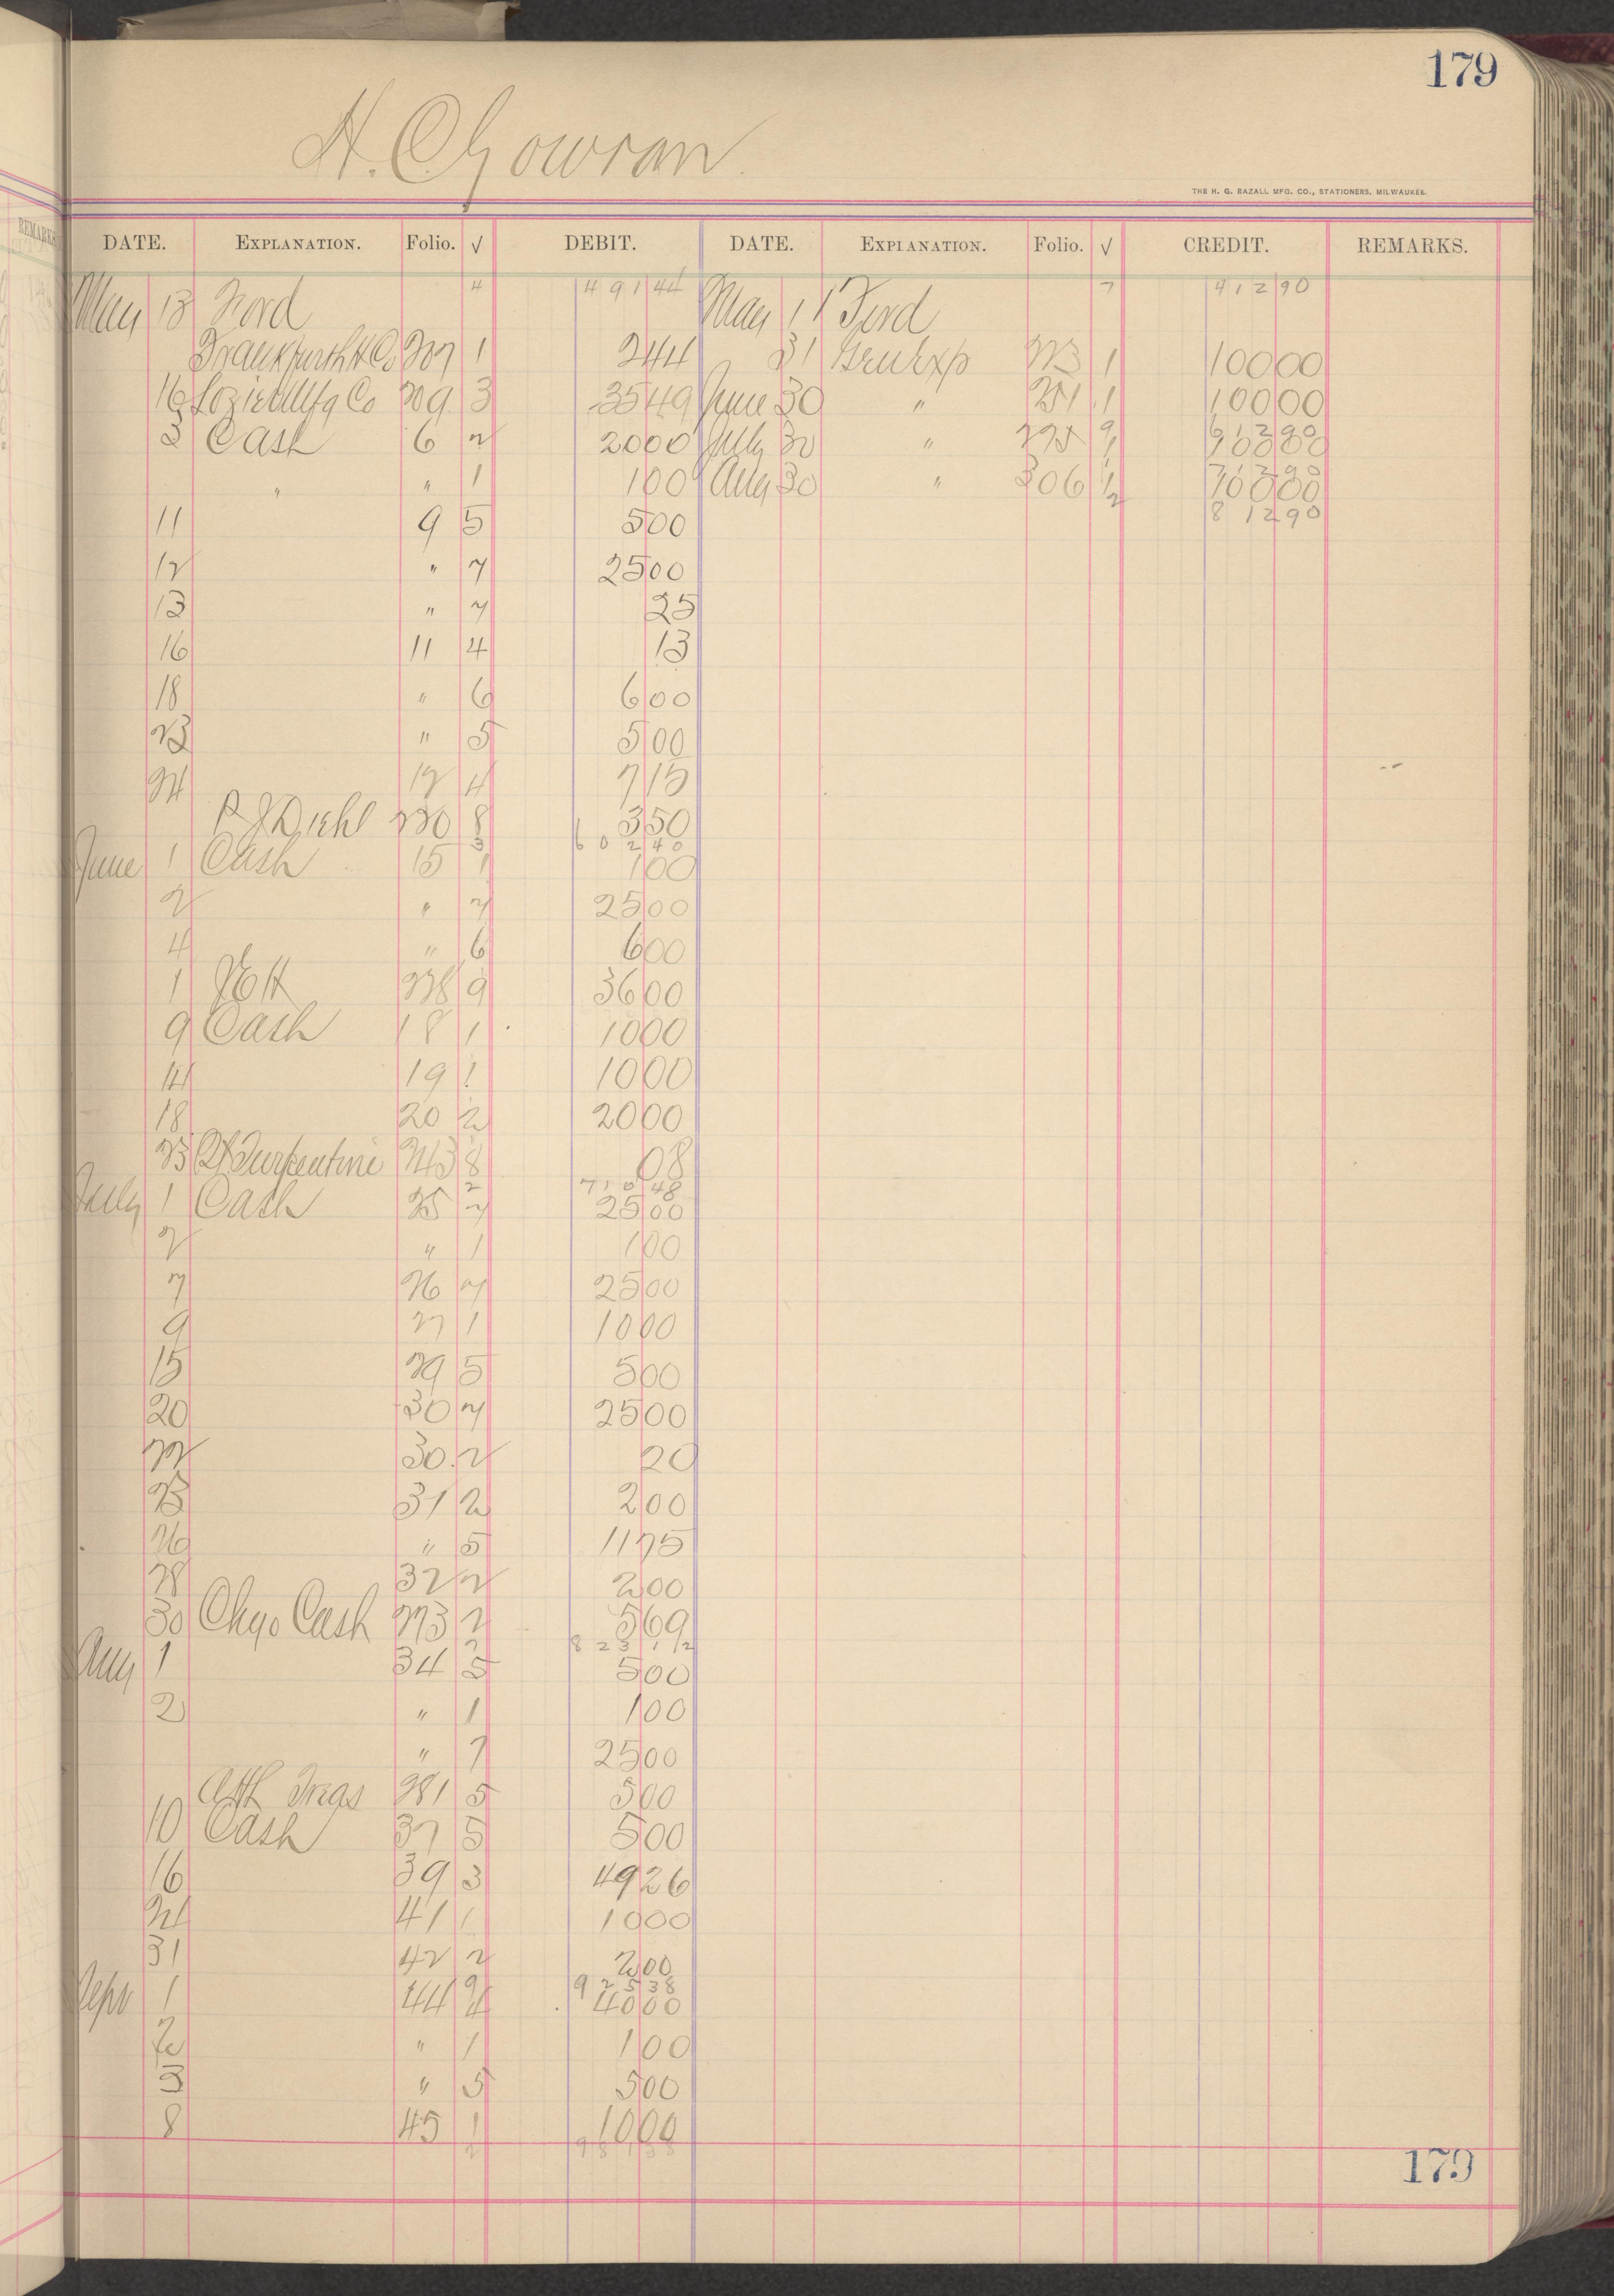 179
H. C. Gowran
THE H. G. RAZALL MFG. CO., STATIONERS, MILWAUKEE.
DATE. EXPLANATION. Folio. √ DEBIT. DATE. EXPLANATION. Folio. √ CREDIT. REMARKS.
May 13 Ford 4 491 44 May 11 Ford 7 412 90
Frankfurth H Co 207 1 2 44 31 Genl Exp 223 1 100 00
16 Lozier Mfg Co 209 3 35 49 June 30 " 251 1 100 00
3 Cash 6 2 20 00 July 30 " 275 9 612 90
1 100 00
" " 1 1 00 Aug 30 " 306 1 712 90
100 00
11 9 5 5 00 2 812 90
12 " 7 25 00
13 " 7 25
16 11 4 13
18 " 6 6 00
23 " 5 5 00
24 12 4 7 15
P J Diehl 230 8 3 50
3 602 40
June 1 Cash 15 1 1 00
2 " 7 25 00
4 " 6 6 00
1 228 9 36 00
9 Cash 18 1 10 00
14 19 1 10 00
18 20 2 20 00
23 Turpentine 243 8 08
2 710 48
July 1 Cash 25 7 25 00
2 " 1 1 00
7 26 7 25 00
9 27 1 10 00
15 29 5 5 00
20 30 7 25 00
22 30 2 20
23 31 2 2 00
26 " 5 11 75
28 32 2 2 00
30 Chgo Cash 273 2 5 69
2 823 12
Aug 1 34 5 5 00
2 " 1 1 00
" 7 25 00
281 5 5 00
10 Cash 37 5 5 00
16 39 3 49 26
24 41 1 10 00
31 42 2 2 00
9 925 38
Sepr 1 44 4 40 00
2 " 1 1 00
3 " 5 5 00
8 45 1 10 00
2 981 38
179